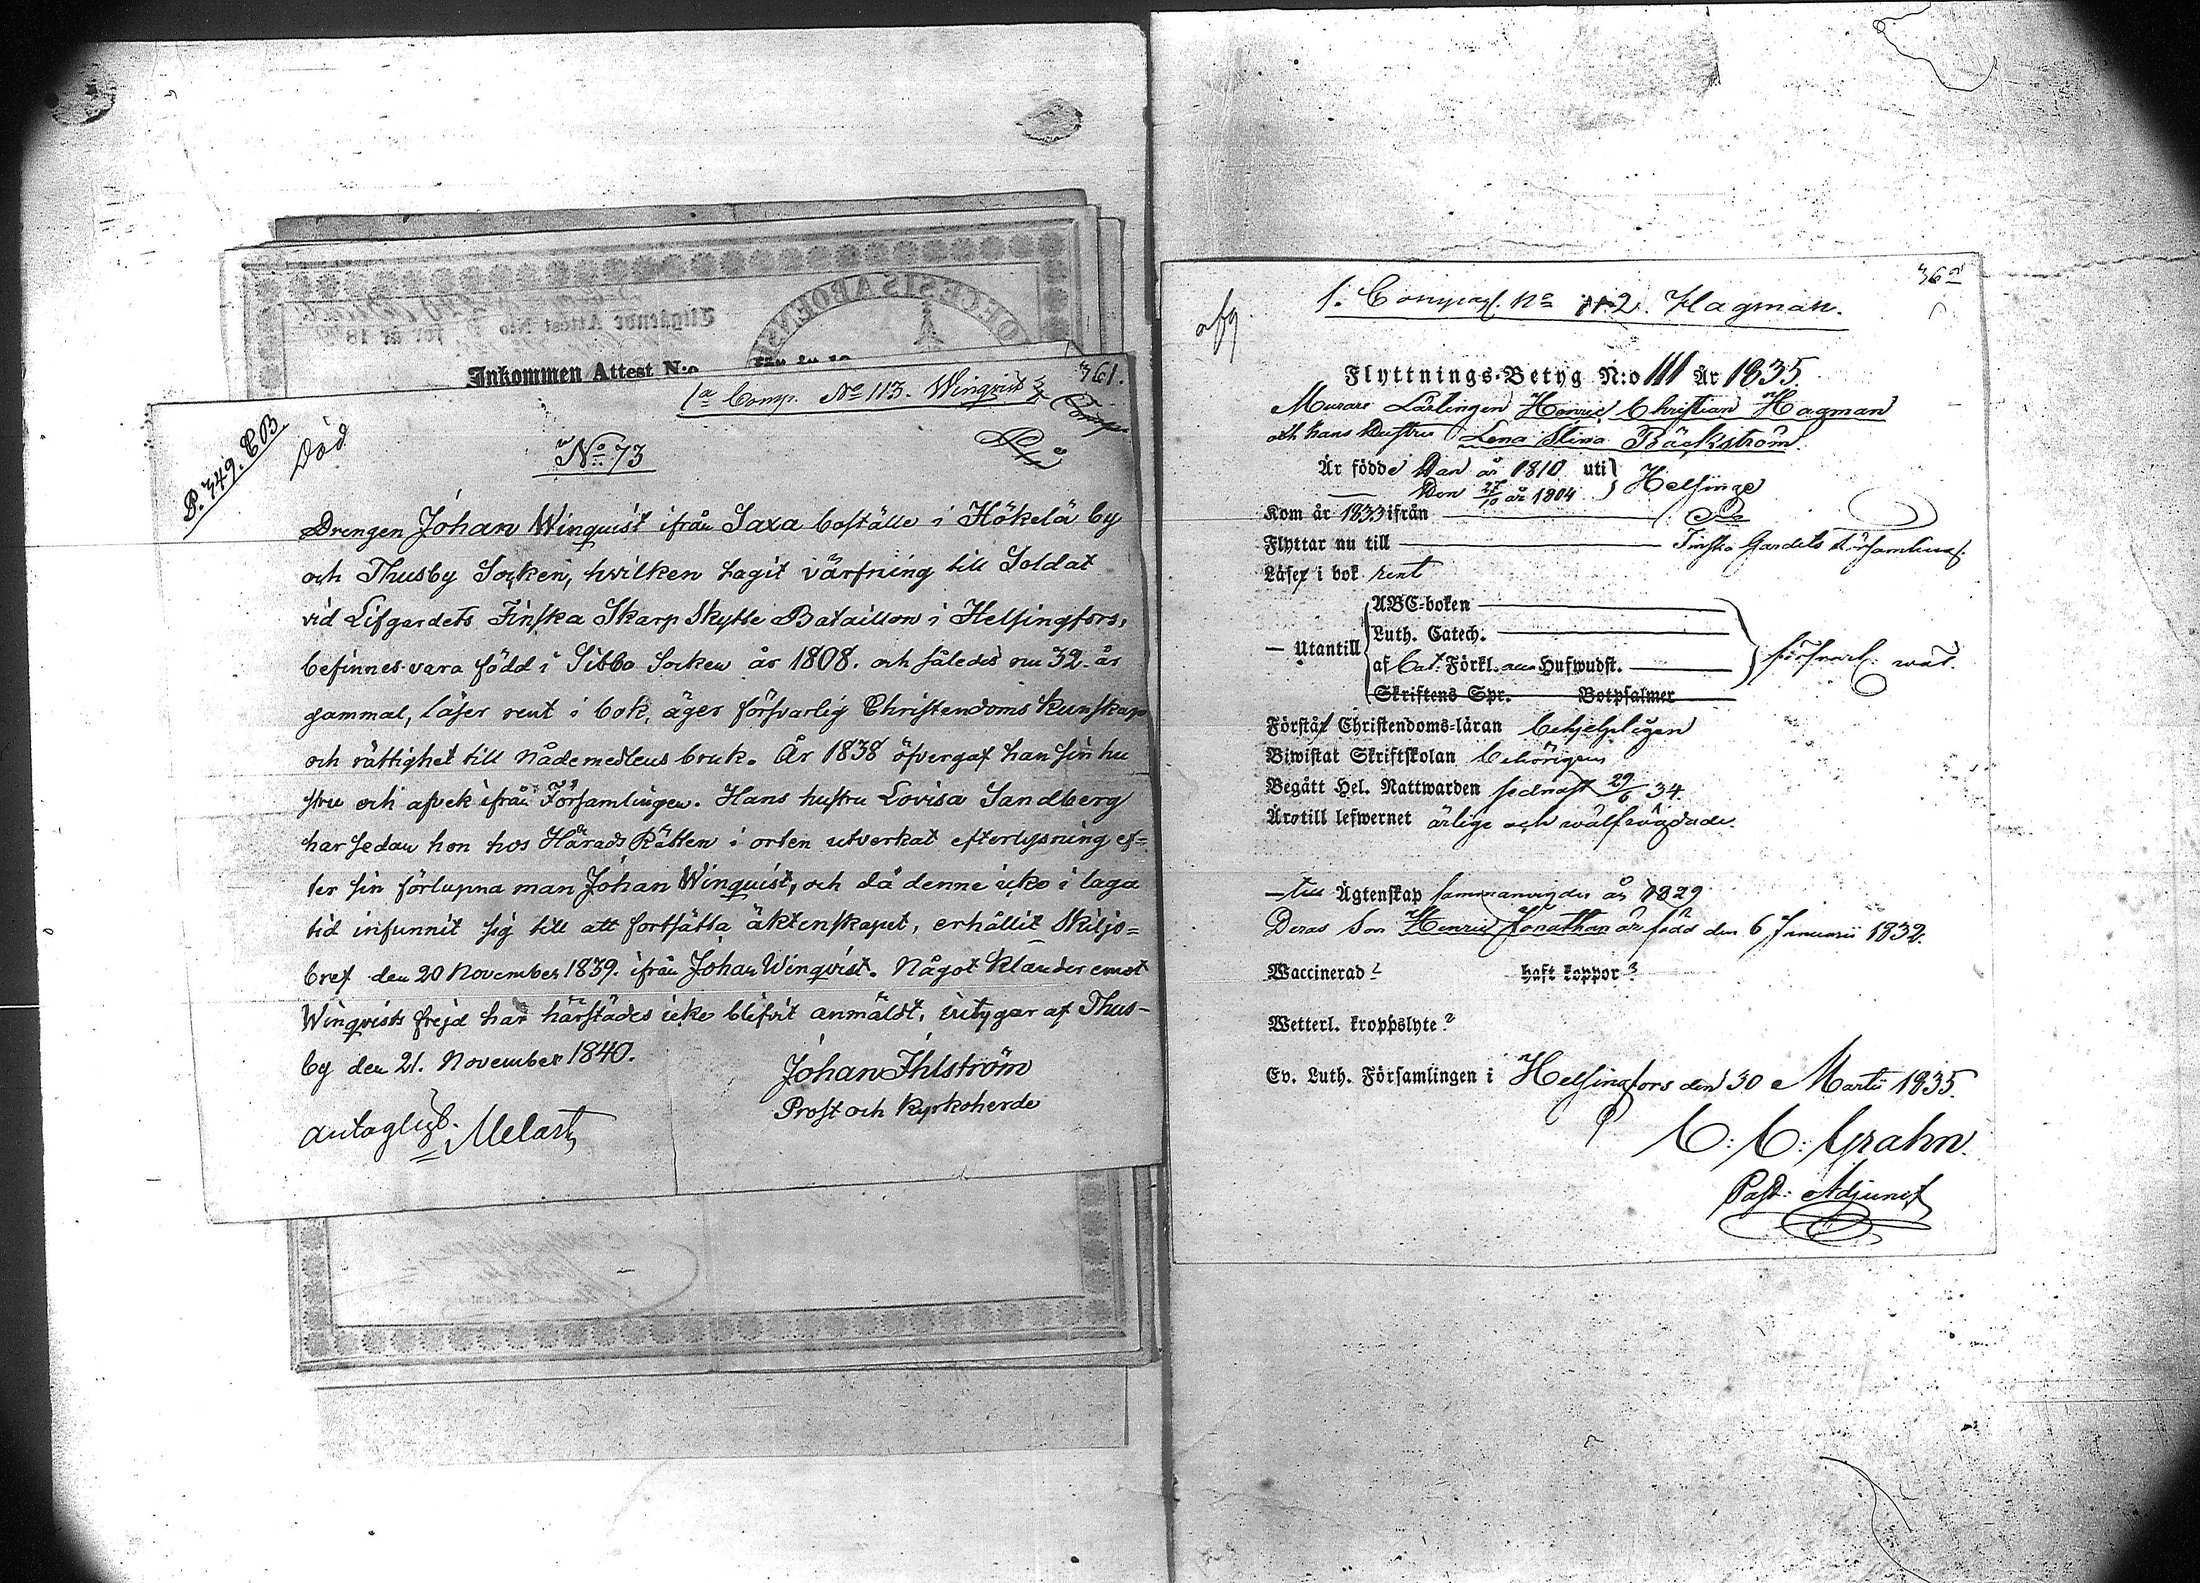 361.
1a Comp. No 113. Winqvist
P. 349. CB.
Död
No 73
Drengen Johan Winquist ifrån Saxa boställe i Hökelä by
och Thusby Socken, hvilken tagit värfning till Soldat
vid Lifgardets Finska Skarp Skytte Bataillon i Helsingfors,
befinnes vara född i Sibbo Socken år 1808. och således nu 32. år
gammal, läser rent i bok, äger försvarlig Christendoms kunskap
och rättighet till nådemedlens bruk. År 1838 öfvergaf han sin hu
stru och afvek ifrån Församlingen. Hans hustru Lovisa Sandberg
har sedan hon hos Härads Rätten i orten utverkat efterlysning ef=
ter sin förlupna man Johan Winquist, och då denne icke i laga
tid infunnit sig till att fortsätta äktenskapet, erhållit Skiljo=
bref den 20 November 1839. ifrån Johan Winqvist. Något klander emot
Winqvists frejd har härstädes icke blifvit anmäldt, intygar af Thus-
by den 21. November 1840.
Johan Ihlström
Prost och Kyrkoherde
Melart
Inkommen Attest N:o
afg
362
1. Compag. No 112. Hagman.
Flyttnings-Betyg N:o 111 År 1835.
Murare Lärlingen Henric Christian Hagman
och hans Hustru Lena Stina Bäckström.
Är födde Den år 1810 uti
Den 27/10 år 1804 Helsinge
Kom år 1833 ifrån
Flyttar nu till Finska Gardets Församling.
Läser i bok rent
Utantill
ABC-boken
Luth. Catech.
af Cat. Förkl. Hufwudst.
Skriftens Spr. Botpsalmer
försvarl.
Förstår Christendoms-läran behjelpligen
Biwistat Skriftskolan behörigen
Begått Hel. Nattwarden sednast 29/6 34.
Äro till lefwernet ärlige och wälfrägdade.
— till Ägtenskap sammanvigde år 1829
Deras Son Henric Jonathan är född den 6 Januarii 1832.
Waccinerad ? haft koppor ?
Wetterl. kroppslyte ?
Ev. Luth. Församlingen i Helsingfors den 30 Martii 1835.
C. C. Grahn.
Past. Adjunct